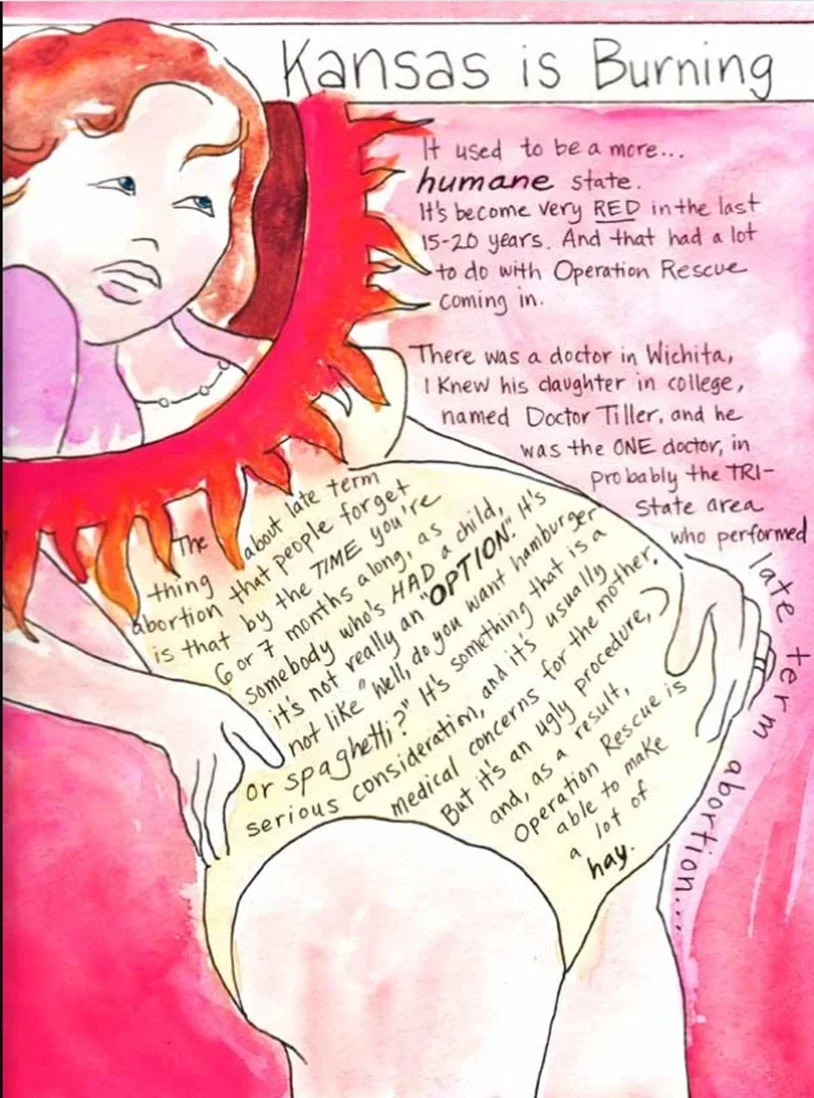 Kansas is Burning
It used to be a more...
humane state.
It's become very RED in the last
15-20 years. And that had a lot
to do with Operation Rescue
coming in.
There was a doctor in Wichita,
I knew his daughter in college,
named Doctor Tiller, and he
was the ONE doctor, in
probably the TRI-
State area
who performed
late term abortion...
The thing about late term
abortion that people forget
is that by the TIME you're
6 or 7 months along, as
somebody who's HAD a child,
it's not really an "OPTION." It's
not like "Well, do you want hamburger
or spaghetti?" It's something that is a
serious consideration, and it's usually
medical concerns for the mother.
But it's an ugly procedure,
and, as a result,
Operation Rescue is
able to make
a lot of
hay.